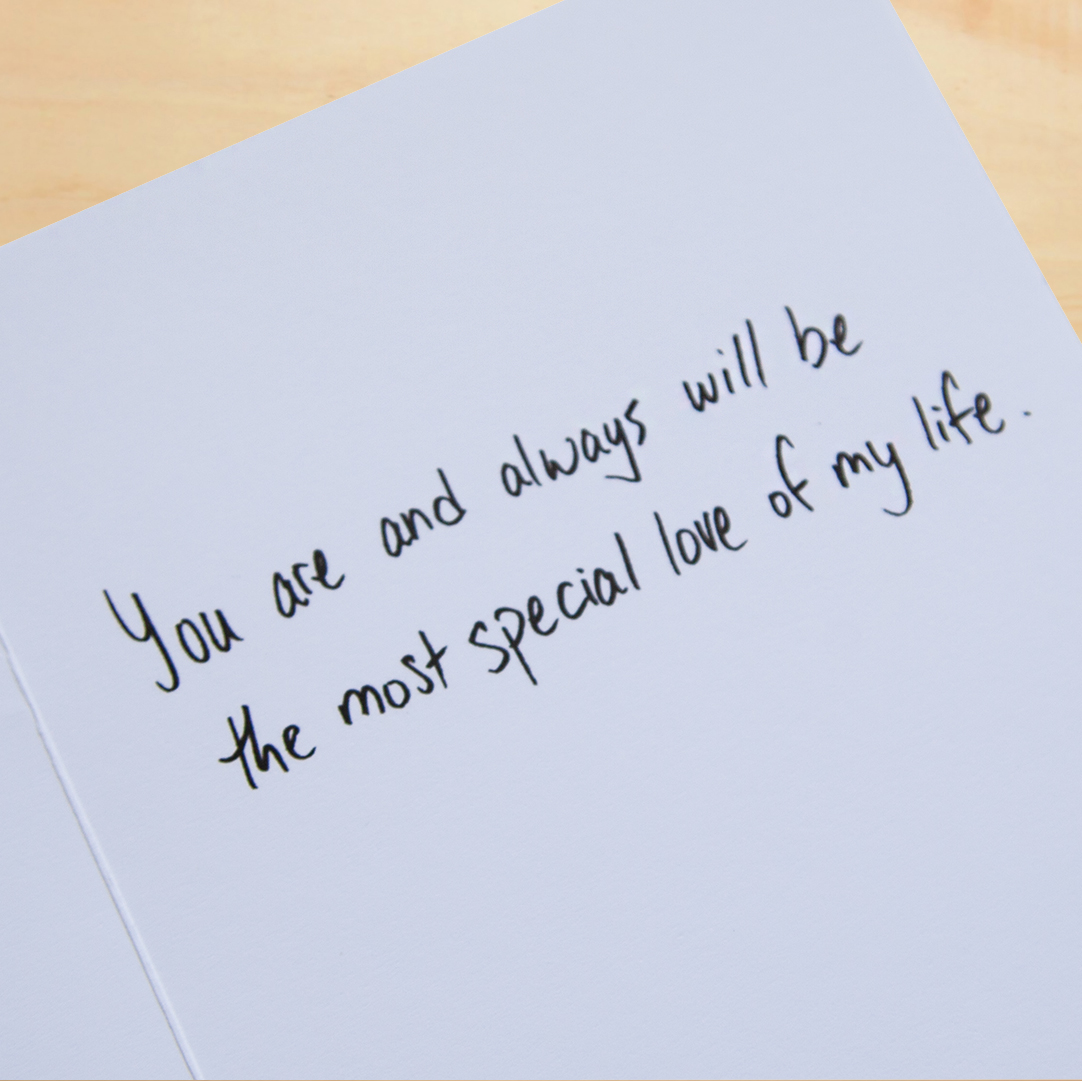 You are and always will be
the most special love of my life.